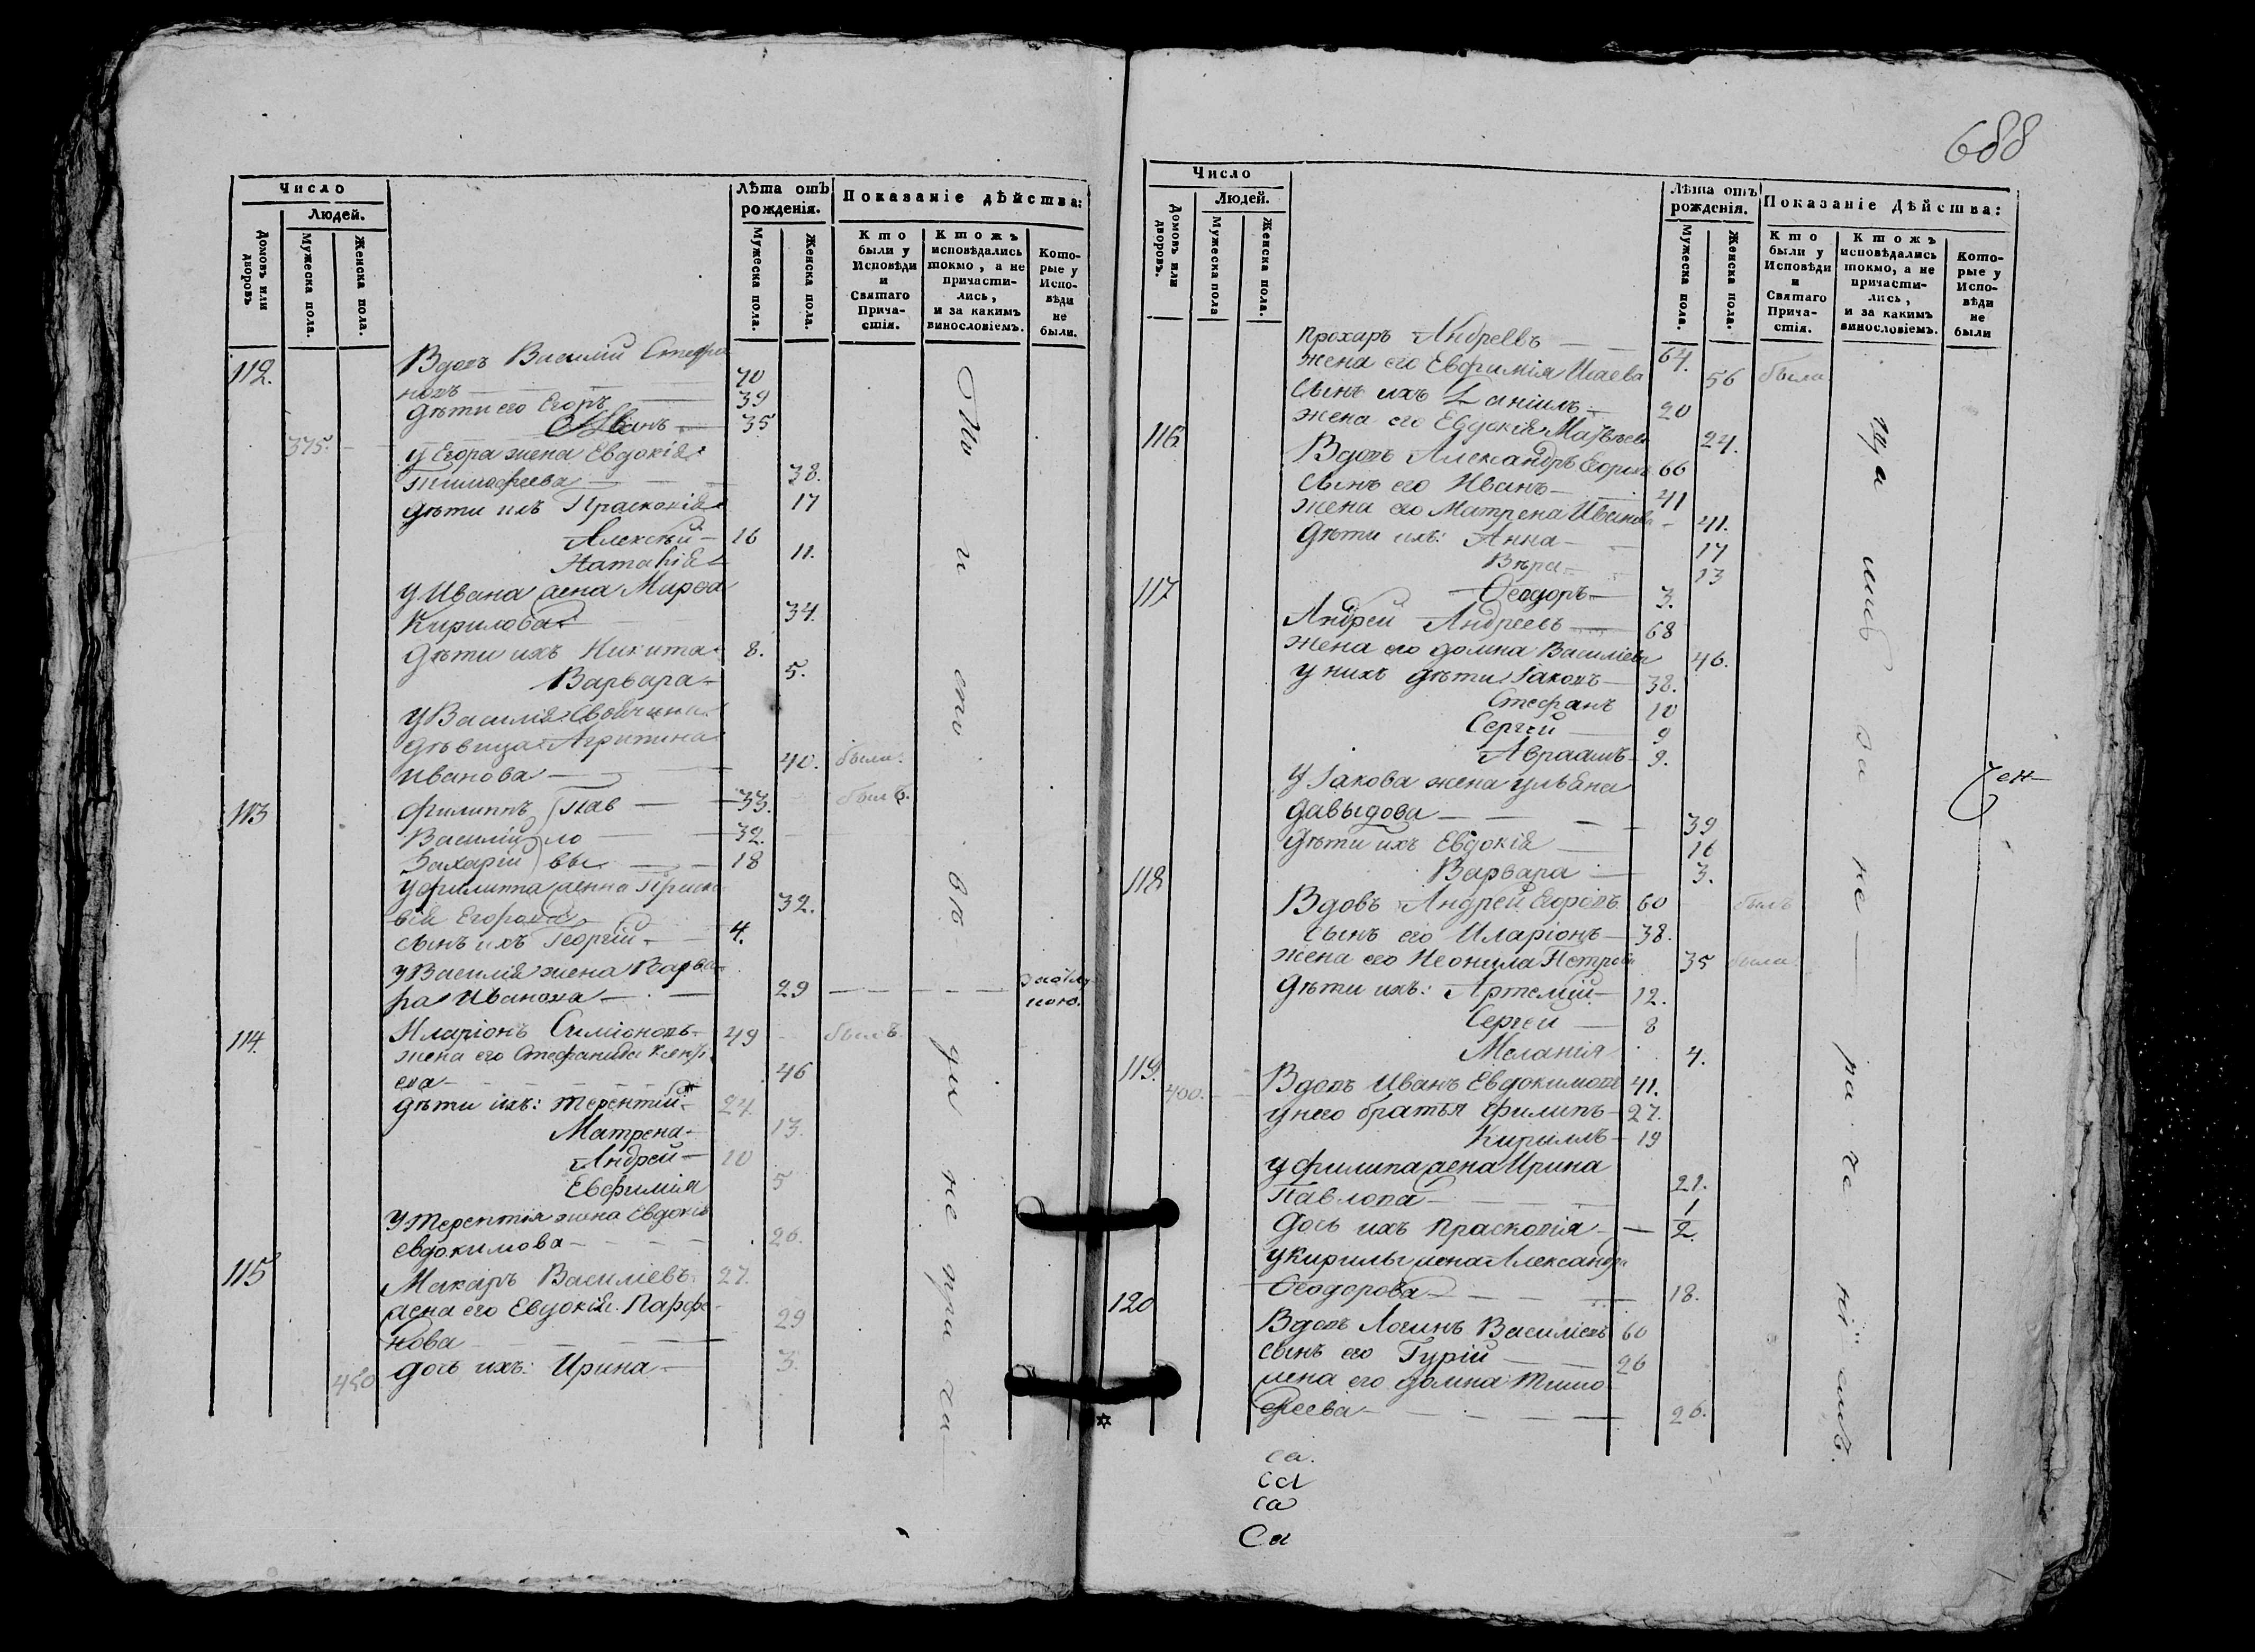 688
Число
Людей.
Домовъ или дворовъ
Мужеска пола.
Женска пола.
Лѣта отъ рожденія.
Мужеска пола.
Женска пола.
Показаніе дѣйства:
Кто были у Исповѣди и Святаго Причастія.
Ктожъ исповѣдались токмо, а не причастились, и за какимъ винословіемъ.
Которые у Исповѣди не были.
112. Вдовъ Василій Стефа
новъ — 70
Дѣти его Егоръ — 39
Иванъ — 35
375. У Егора жена Евдокія
Тимофеева — 38.
Дѣти ихъ Прасковія 17
Алексѣй — 16
Наталія 11.
У Ивана жена Марѳа
Кирилова 34.
Дѣти ихъ Никита 8.
Варвара — 5.
У Василія
дѣвица Агрипина
Иванова — 40. была.
113 Филиппъ Пав — 33. былъ.
Василій ло — 32.
Захарій вы — 18
У Филиппа жена Праско
вія Егорова 32.
Сынъ ихъ Георгій — 4.
У Василія жена Варва
ра Иванова — 29
114. Иларіонъ Симіоновъ — 49 былъ
жена его Стефанида
ева — 46
Дѣти ихъ: Терентій 24.
Матрена — 13.
Андрей — 10
Евфимія 5
У Терентія жена Евдокія
Евдокимова — 26.
115 Макаръ Василіевъ. 27.
жена его Евдокія Парфе-
нова — 29
450 дочь ихъ: Ирина — 3.
Число
Людей.
Домовъ или дворовъ.
Мужеска пола
Женска пола.
Лѣта отъ рожденія.
Мужеска пола.
Женска пола.
Показаніе Дѣйства:
Кто были у Исповѣди и Святаго Причастія.
Ктожъ исповѣдались токмо, а не причастились, и за какимъ винословіемъ.
Которые у Исповѣди не были
Прохаръ Андреевъ — 64.
жена его Евфимія Исаева 56 была
Сынъ ихъ Даніилъ — 20
жена его Евдокія Матвѣева 24.
116 Вдовъ Александръ Егоровъ 66
Сынъ его Иванъ — 41
жена его Матрена Иванова — 41.
Дѣти ихъ: Анна — 17
Вѣра — 13
Ѳеодоръ — 3.
117 Андрей Андреевъ — 68
жена его Домна Василіева 46.
У нихъ дѣти Іаковъ — 38.
Стефанъ 10
Сергей — 9
Авраамъ — 9.
У Іакова жена Ульяна
Давыдова — 39
Дѣти ихъ Евдокія — 16
Варвара — 3.
118 Вдовъ Андрей Егоровъ 60 былъ
Сынъ его Иларіонъ — 38.
жена его Неонила Петрова 35 была.
Дѣти ихъ: Артемій — 12.
Сергей — 8
Меланія 4.
119. Вдовъ Иванъ Евдокимовъ 41.
400. У него братья Филипъ — 27.
Кириллъ — 19
У Филипа жена Ирина
Павлова — 21.
Дочь ихъ Прасковія — 1/2.
У Кирилы жена Александра
Ѳеодорова — 18.
120 Вдовъ Логинъ Василіевъ 60
Сынъ его Гурій — 26
жена его Домна Тимо
феева — 26.
са.
са
са
Са